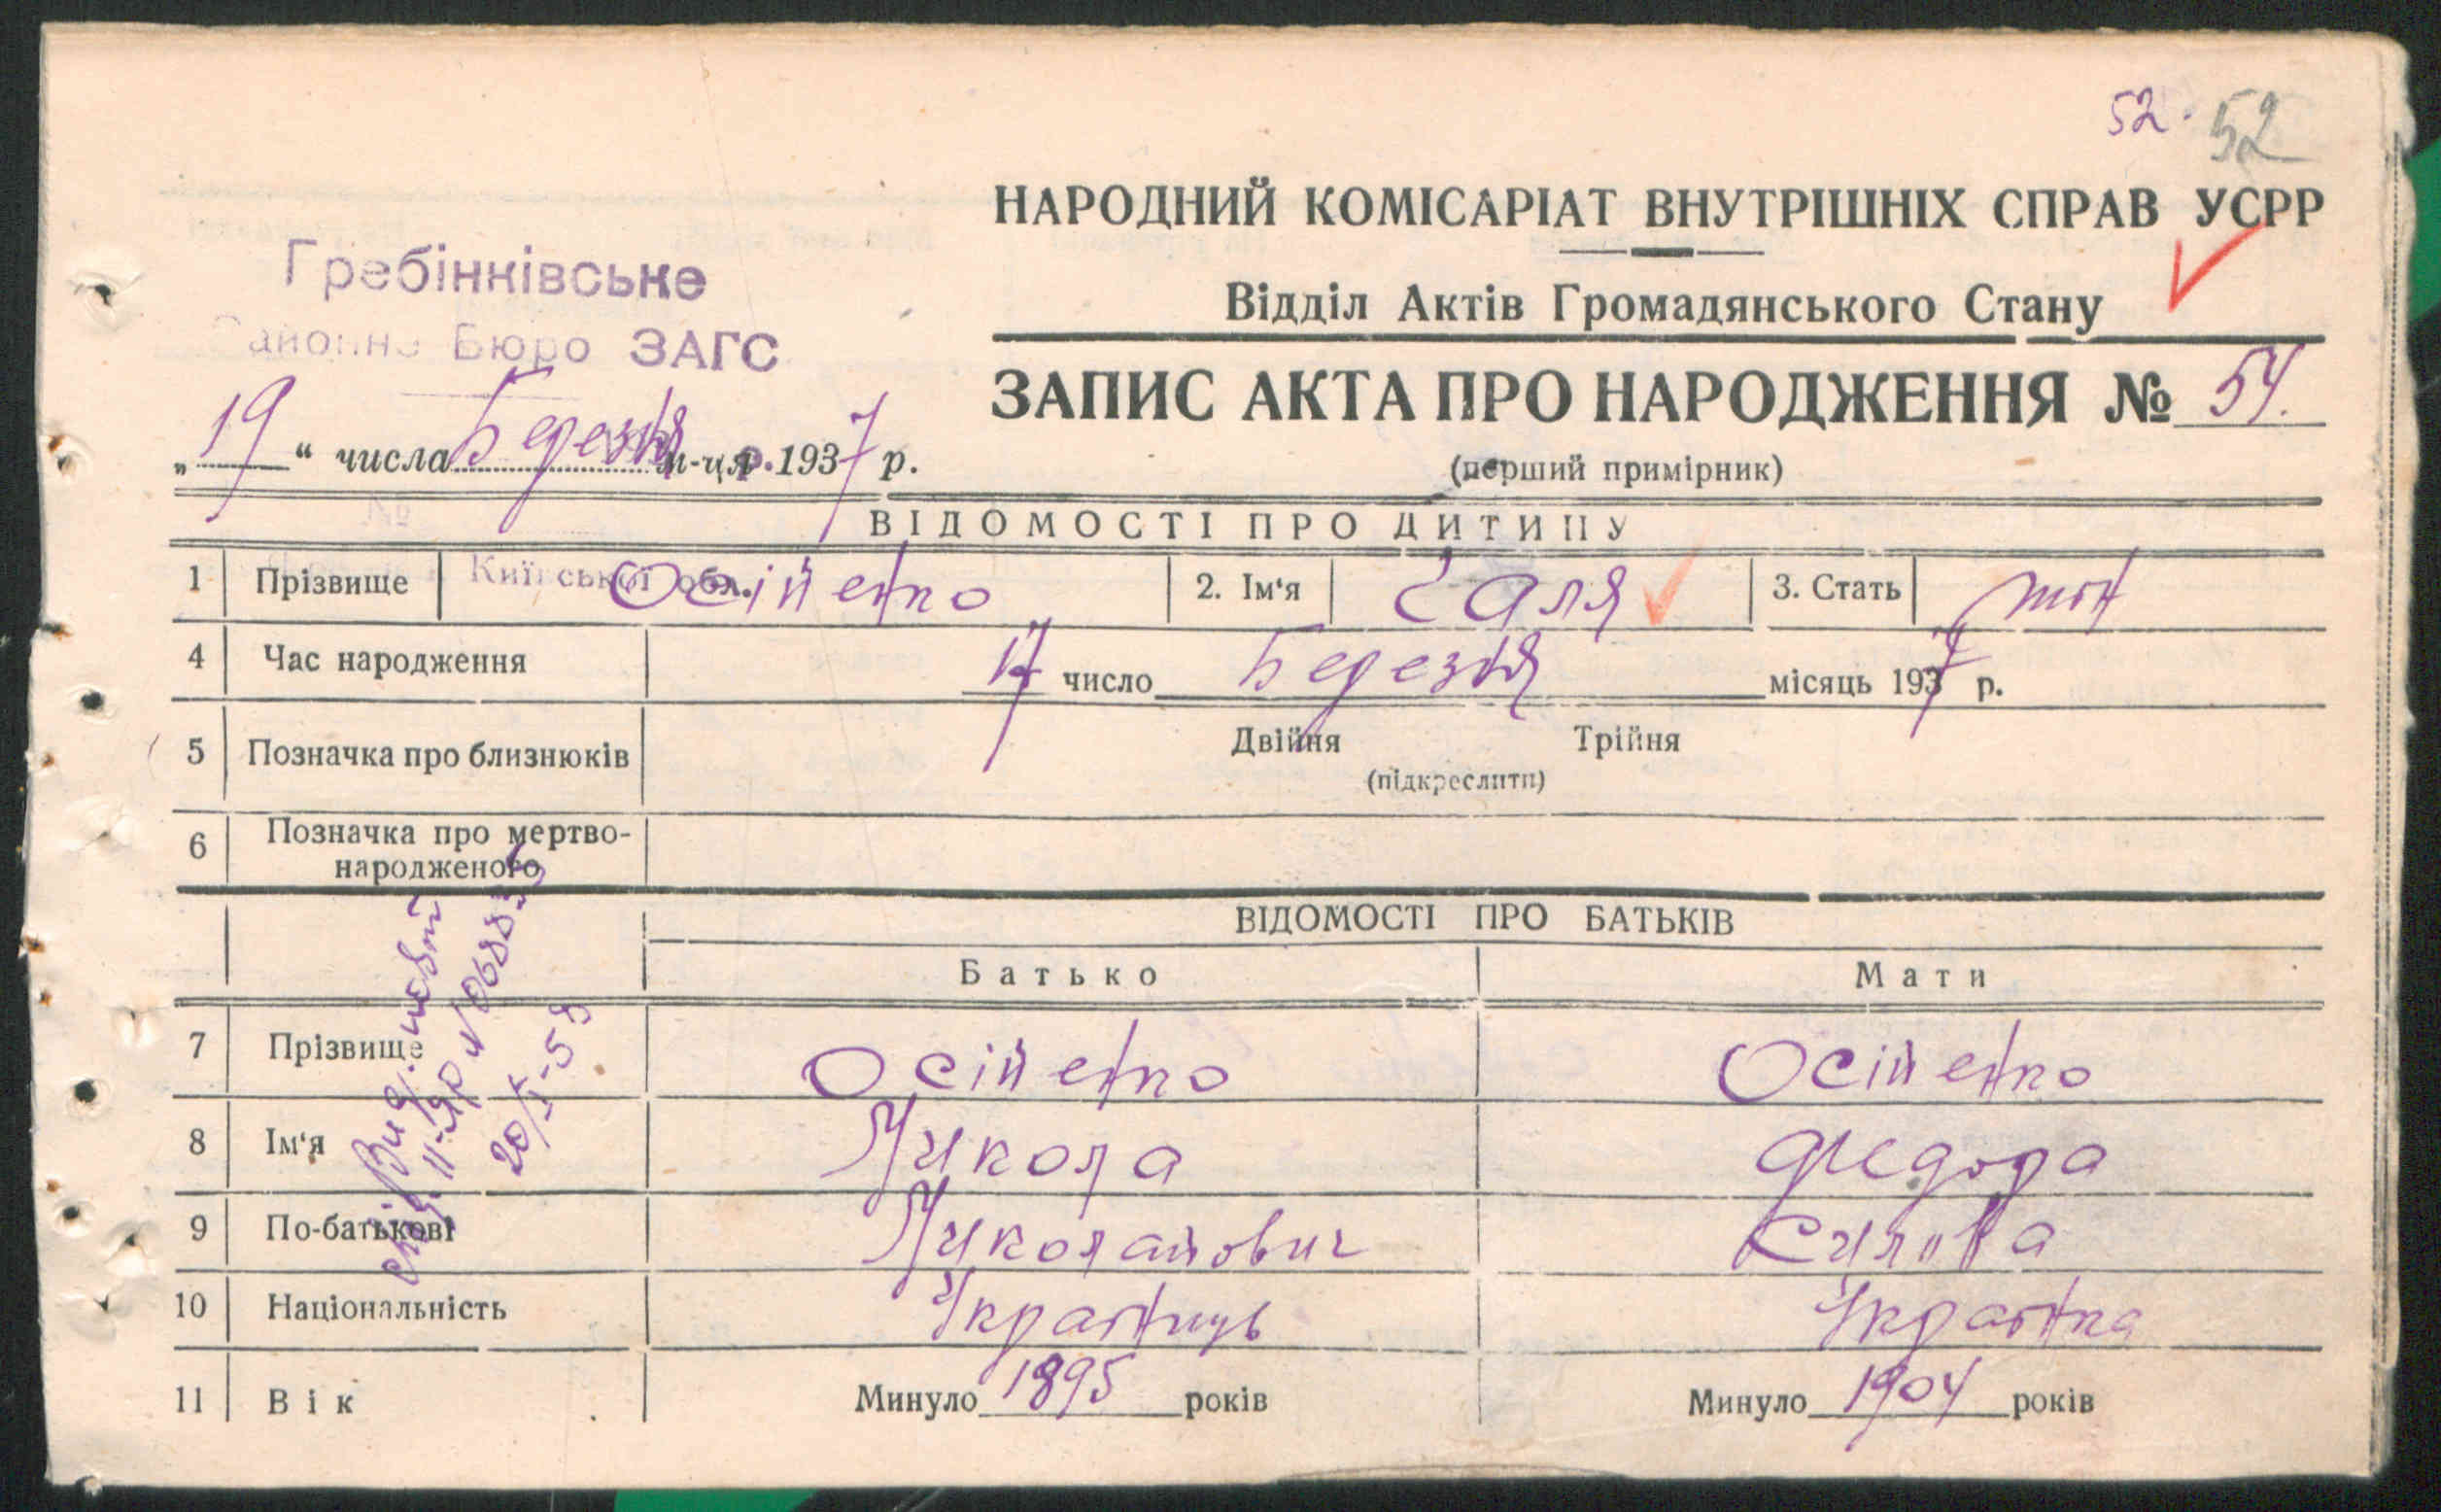 52. 52
НАРОДНИЙ КОМІСАРІАТ ВНУТРІШНІХ СПРАВ УСРР
Гребінківське
Районне Бюро ЗАГС
Відділ Актів Громадянського Стану
ЗАПИС АКТА ПРО НАРОДЖЕННЯ № 54.
„19“ числа Березня м-ця 1937 р.
(перший примірник)
№
ВІДОМОСТІ ПРО ДИТИНУ
Київської обл.
1 Прізвище Осійенко 2. Ім‘я Галя 3. Стать жін
4 Час народження 17 число Березня місяць 1937 р.
5 Позначка про близнюків Двійня Трійня
(підкреслити)
6 Позначка про мертво-
народженого
ВІДОМОСТІ ПРО БАТЬКІВ
Батько Мати
7 Прізвище Осійенко Осійенко
8 Ім‘я Микола Федора
9 По-батькові Миколайович
10 Національність Українець Українка
11 Вік Минуло 1895 років Минуло 1904 років
20/I-58